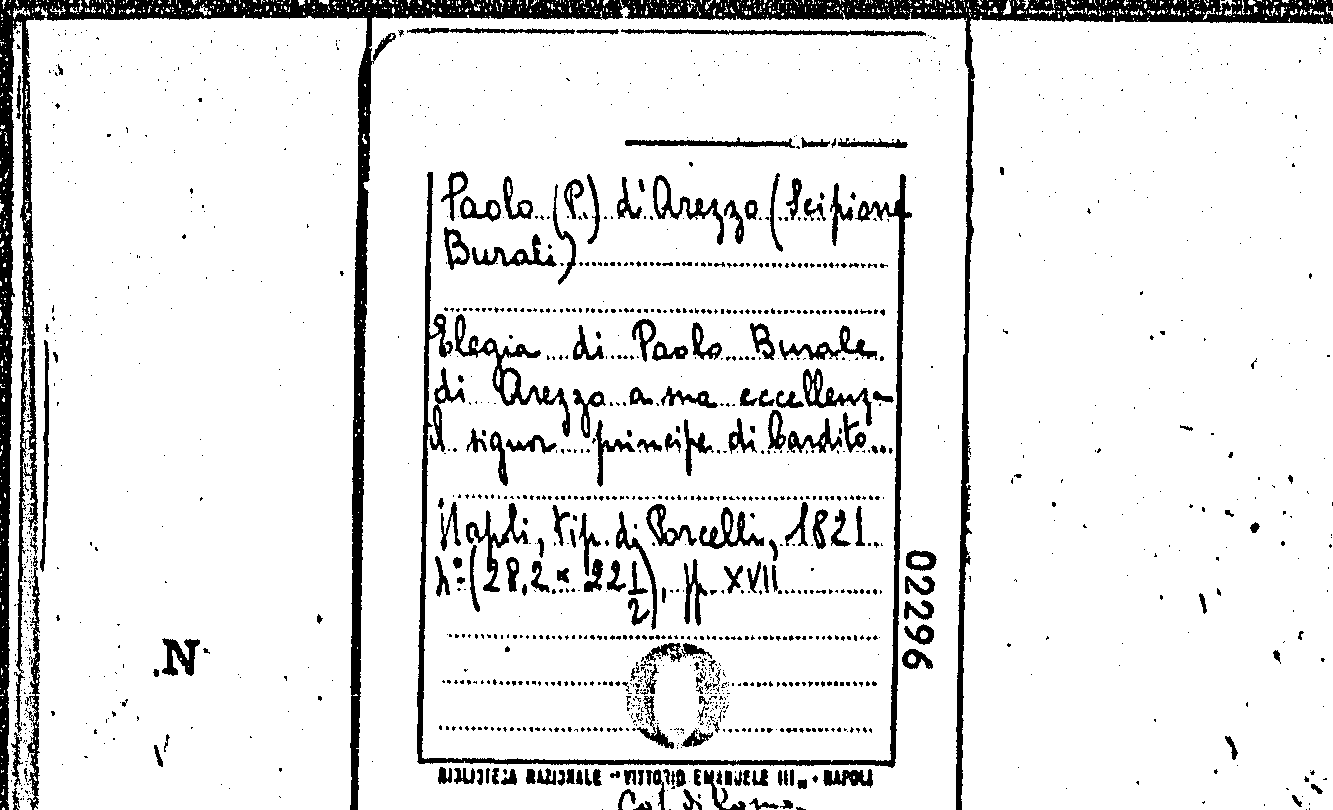 Paolo (P.) d'Arezzo (Scipione
Burali)
Elegia di Paolo Burale
di Arezzo a sua eccellenza
il signor principe di Cardito...
Napoli, tip. di Porcelli, 1821
4º (28,2 × 22 1/2), pp. XVII
02296
.N
BIBLIOTECA NAZIONALE "VITTORIO EMANUELE III" - NAPOLI